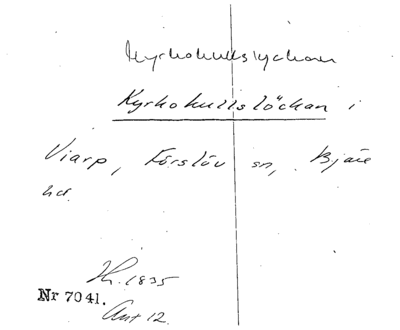 Kyrkohullslyckan
Kyrkohullslöckan i
Viarp, Förslöv sn, Bjäre
hd.
Nr 7041.
H. 1835
Ant 12.